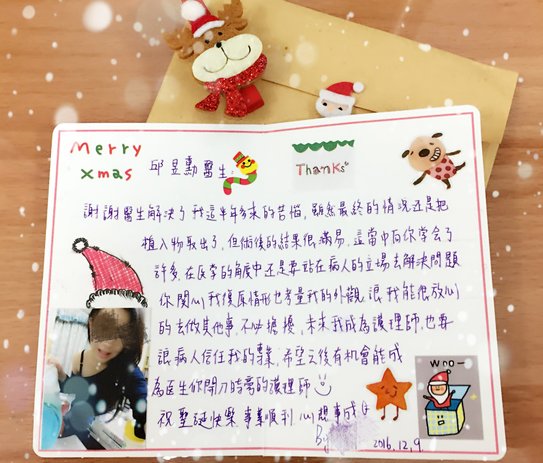 Merry
xmas
邱昱勳醫生:
Thanks
謝謝醫生解決了我這半年多來的苦惱,雖然最終的情況还是把
植入物取出了,但術後的結果很滿易,這當中向你学会了
許多,在医学的角度中还是要站在病人的立場去解決問題
你関心我復原情形也考量我的外觀,讓我能很放心
的去做其他事,不必擔擾,未來我成為護理師,也要
讓病人信任我的專業,希望之後有機會能成
為医生你開刀時旁的護理師
祝聖誕快樂 事業順利 心想事成
By
2016.12.9.
Woo—